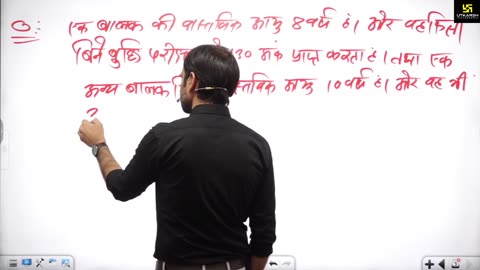 Q: एक बालक की वास्तविक आयु 8 वर्ष है। और वह किसी
बिने बुद्धि परी 30 अंक प्राप्त करता है। तथा एक
अन्य बालक वास्तविक आयु 10 वर्ष है। और वह भी
UTKARSH